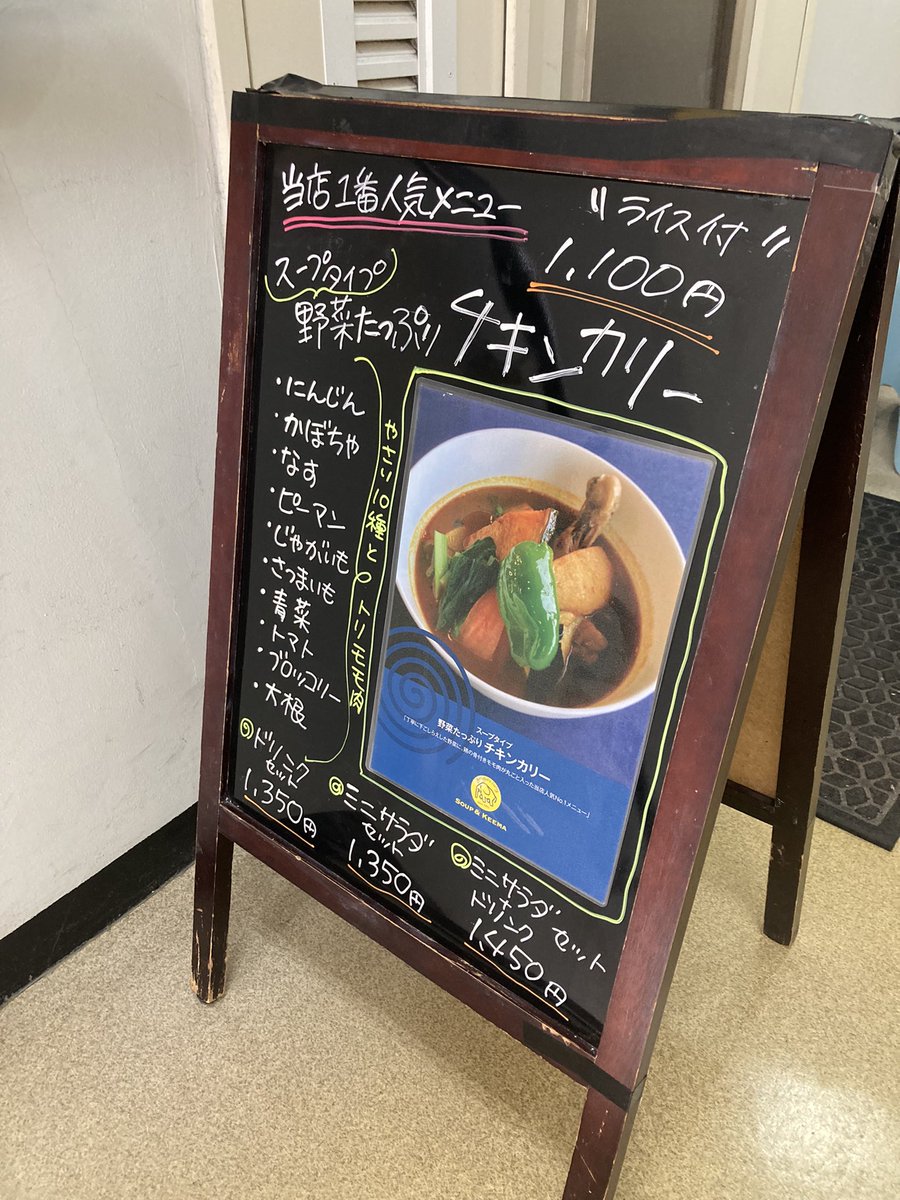 当店1番人気メニュー
"ライス付"
1,100円
スープタイプ
野菜たっぷり チキンカリー
・にんじん
・かぼちゃ
・なす
・ピーマン
・じゃがいも
・さつまいも
・青菜
・トマト
・ブロッコリー
・大根
やさい10種とトリモモ肉
スープタイプ
野菜たっぷりチキンカリー
「丁寧に下ごしらえした野菜に、鶏の骨付きモモ肉が丸ごと入った当店人気No.1メニュー」
SOUP & KEEMA
ドリンク
セット
1,350円
ミニサラダ
セット
1,350円
ミニサラダ
ドリンク セット
1,450円